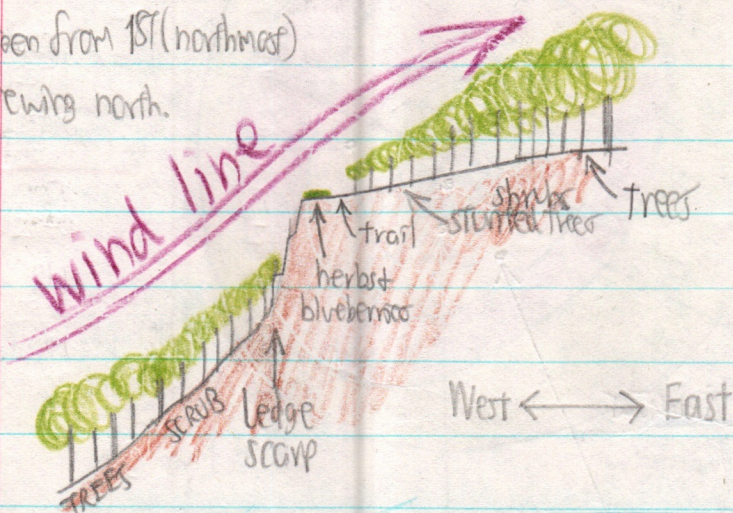 een from 1ST (northmost)
ewing north.
wind line
shrubs
stunted trees
trees
trail
herbs+
blueberries
SCRUB
ledge
scarp
TREES
West ↔ East